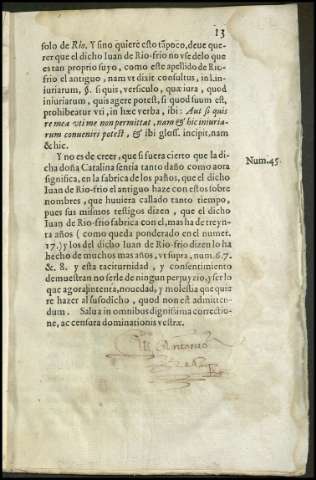 13
solo de Rio. Y sino quiere esto tãpoco, deue que-
rer que el dicho Iuan de Rio-frio no vse de lo que
es tan proprio suyo, como este apellido de Rio-
frio el antiguo, nam vt dixit consultus, in l. in-
iuriarum, §. si quis, versiculo, quæ iura, quod
iniuriarum, quis agere potest, si quod suum est,
prohibeatur vti, in hæc verba, ibi: Aut si quis
re mea vti me non permittat, nam & hic iniuria-
rum conueniri potest, & ibi gloss. incipit, nam
& hic.
Y no es de creer, que si fuera cierto que la di-
Num. 45.
cha doña Catalina sentia tanto daño como aora
significa, en la fabrica de los paños, que el dicho
Iuan de Rio-frio el antiguo haze con estos sobre
nombres, que huuiera callado tanto tiempo,
pues sus mismos testigos dizen, que el dicho
Iuan de Rio-frio fabrica con el, mas ha de treyn-
ta años (como queda ponderado en el numer.
17.) y los del dicho Iuan de Rio-frio dizen lo ha
hecho de muchos mas años, vt supra, num. 6. 7.
& 8. y esta taciturnidad, y consentimiento
demuestran no serle de ningun perjuyzio, y ser lo
que agora intenta, nouedad, y molestia que quie
re hazer al susodicho, quod non est admitten-
dum. Salua in omnibus dignissima correctio-
ne, ac censura dominationis vestræ.
Antonio